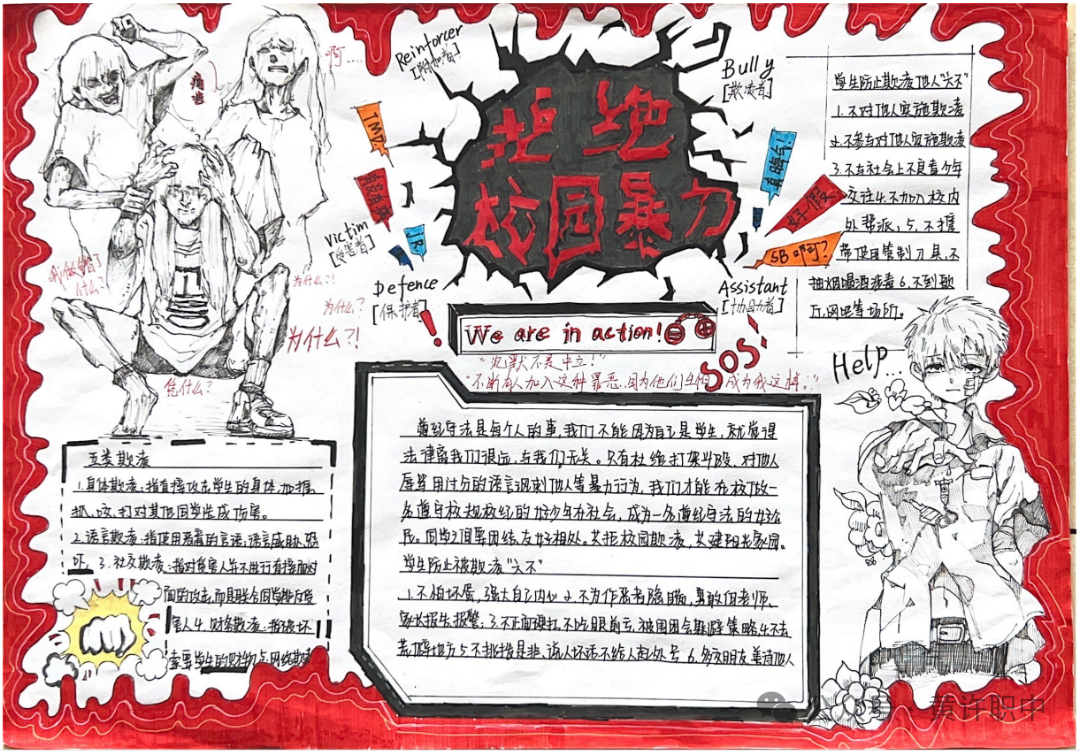 拒绝
校园暴力
Reinforcer
[附和者]
Bully
[欺凌者]
Victim
[受害者]
Defence
[保护者]
Assistant
[协助者]
啊……
真晦气!
好假
SB啊?
我做错了
什么?
为什么?!
为什么?
为什么?!
凭什么?
We are in action!
"沉默不是中立!"
SOS!
Help...
学生防止欺凌他人"六不"
1.不对他人实施欺凌
2.不参与对他人实施欺凌
3.不与社会上不良青少年
交往4.不加入校内
外帮派,5.不携
带使用管制刀具,不
抽烟喝酒
厅,网吧等场所。
五类欺凌
1.身体欺凌:指直接攻击学生的身体,如推,
抓,咬,打对其他同学造成伤害。
2.语言欺凌:指使用恶毒的言语,语言威胁,恐
吓。3.社交欺凌:
害人4.财务欺凌:指破坏
索要学生的财物5.网络欺凌
遵纪守法是每个人的事,我们不能因为自己是学生,就觉得
法律离我们很远,与我们无关。只有杜绝打架斗殴,对他人
辱骂用过分的语言讽刺他人等暴力行为,我们才能在校做一
名遵守校规校纪的好少年在社会,成为一名遵纪守法的好公
民。同学之间要团结友好相处。共拒校园欺凌,共建阳光家园。
学生防止被欺凌"六不"
1.不怕坏蛋,强大自己内心2.不为作恶者隐瞒,勇敢向老师,
家长报告,报警,3.不正面硬扛,不吃眼前亏,被围困
荒僻地方5.不挑拨是非,说人坏话不给人起外号6.多交朋友,善待他人
黄许职中